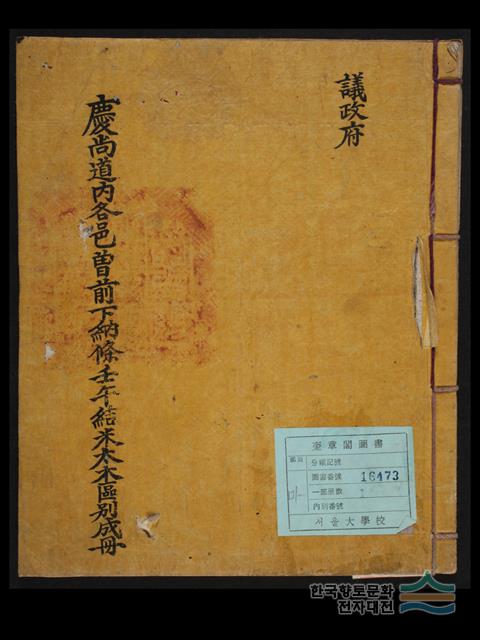 議政府
慶尙道內各邑曾前下納條壬午結米太木區別成冊
奎章閣圖書
分類記號
圖書番號 16473
一部冊數
內別番號
서울大學校
한국향토문화
전자대전